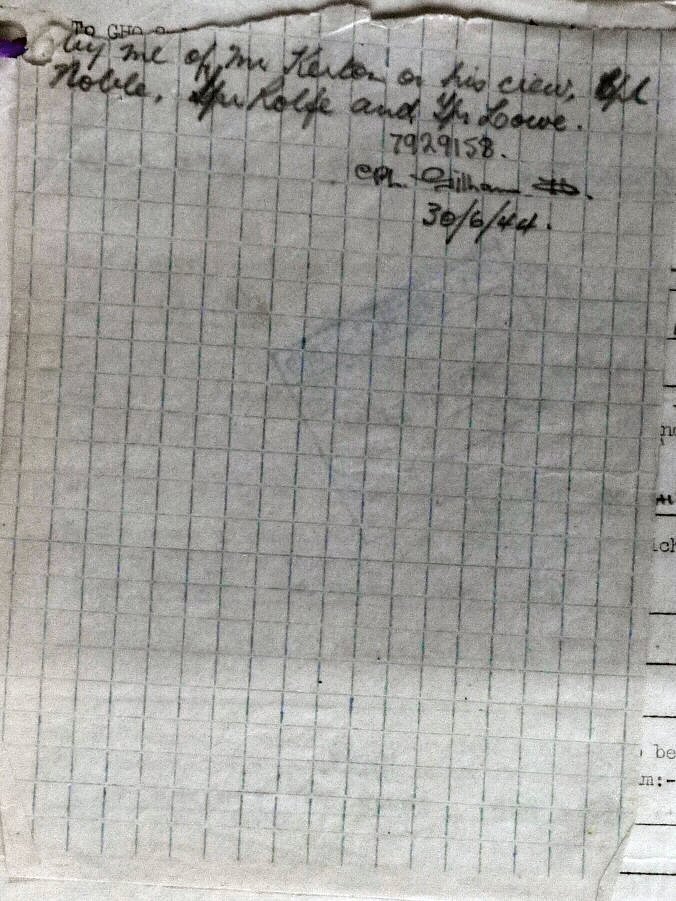 TO GHQ 2
by me of Mr Kerton or his crew, Cpl
Noble, Tpr Rolfe and Tpr Lowe.
7929158.
CPL. Gilham
30/6/44.
be
m:-